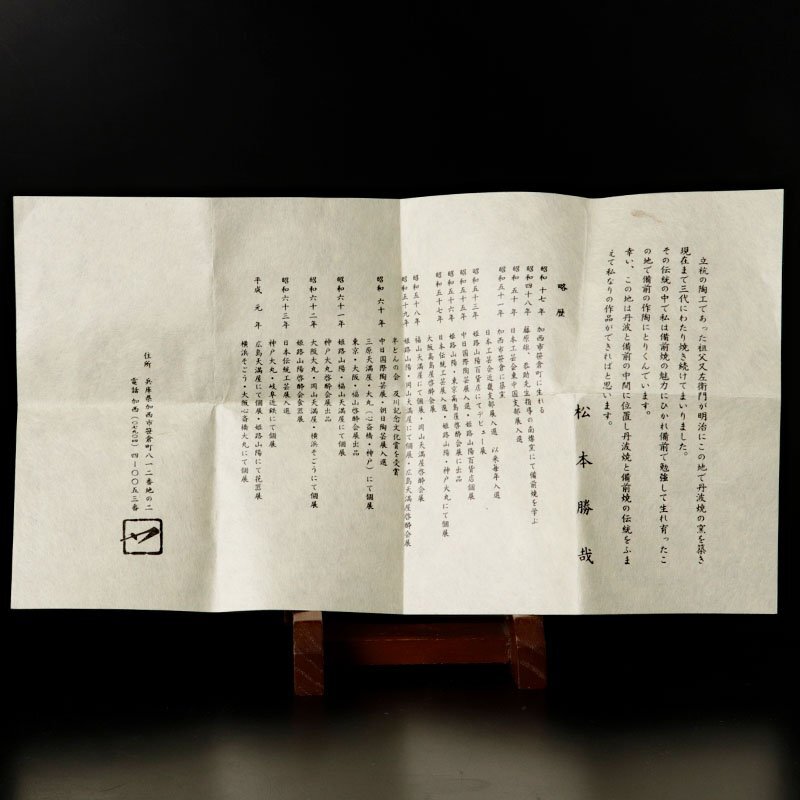 立杭の陶工であった祖父又左衛門が明治にこの地で丹波焼の窯を築き
現在まで三代にわたり焼き続けてまいりました。
その伝統の中で私は備前焼の魅力にひかれ備前で勉強して生れ育ったこ
の地で備前の作陶にとりくんでいます。
幸い、この地は丹波と備前の中間に位置し丹波焼と備前焼の伝統をふま
えて私なりの作品ができればと思います。
松本勝哉
略歴
昭和十七年 加西市笹倉町に生れる
昭和四十八年 藤原雄、恭助先生指導の南燦窯にて備前焼を学ぶ
昭和五十年 日本工芸会東中国支部展入選
昭和五十一年 加西市笹倉に築窯
日本工芸会近畿支部展入選 以来毎年入選
昭和五十三年 姫路山陽百貨店にてデビュー展
昭和五十五年 中日国際陶芸展入選・姫路山陽百貨店個展
昭和五十六年 姫路山陽・東京高島屋啓酔会展に出品
昭和五十七年 日本伝統工芸展入選・姫路山陽・神戸大丸にて個展
大阪高島屋啓酔会展
昭和五十八年 福山天満屋にて個展・岡山天満屋啓酔会展
昭和五十九年 姫路山陽・岡山天満屋にて個展・広島天満屋啓酔会展
半どんの会 及川記念文化賞を受賞
昭和六十年 中日国際陶芸展・朝日陶芸展入選
三原天満屋・大丸（心斎橋・神戸）にて個展
東京・大阪・福山啓酔会展出品
昭和六十一年 姫路山陽・福山天満屋にて個展
神戸大丸啓酔会展出品
昭和六十二年 大阪大丸・岡山天満屋・横浜そごうにて個展
姫路山陽啓酔会食器展
昭和六十三年 日本伝統工芸展入選
神戸大丸・岐阜近鉄にて個展
平成元年 広島天満屋にて個展・姫路山陽にて花器展
横浜そごう・大阪心斎橋大丸にて個展
住所 兵庫県加西市笹倉町八一二番地の二
電話 加西（〇七九〇四）四ー〇〇五三番